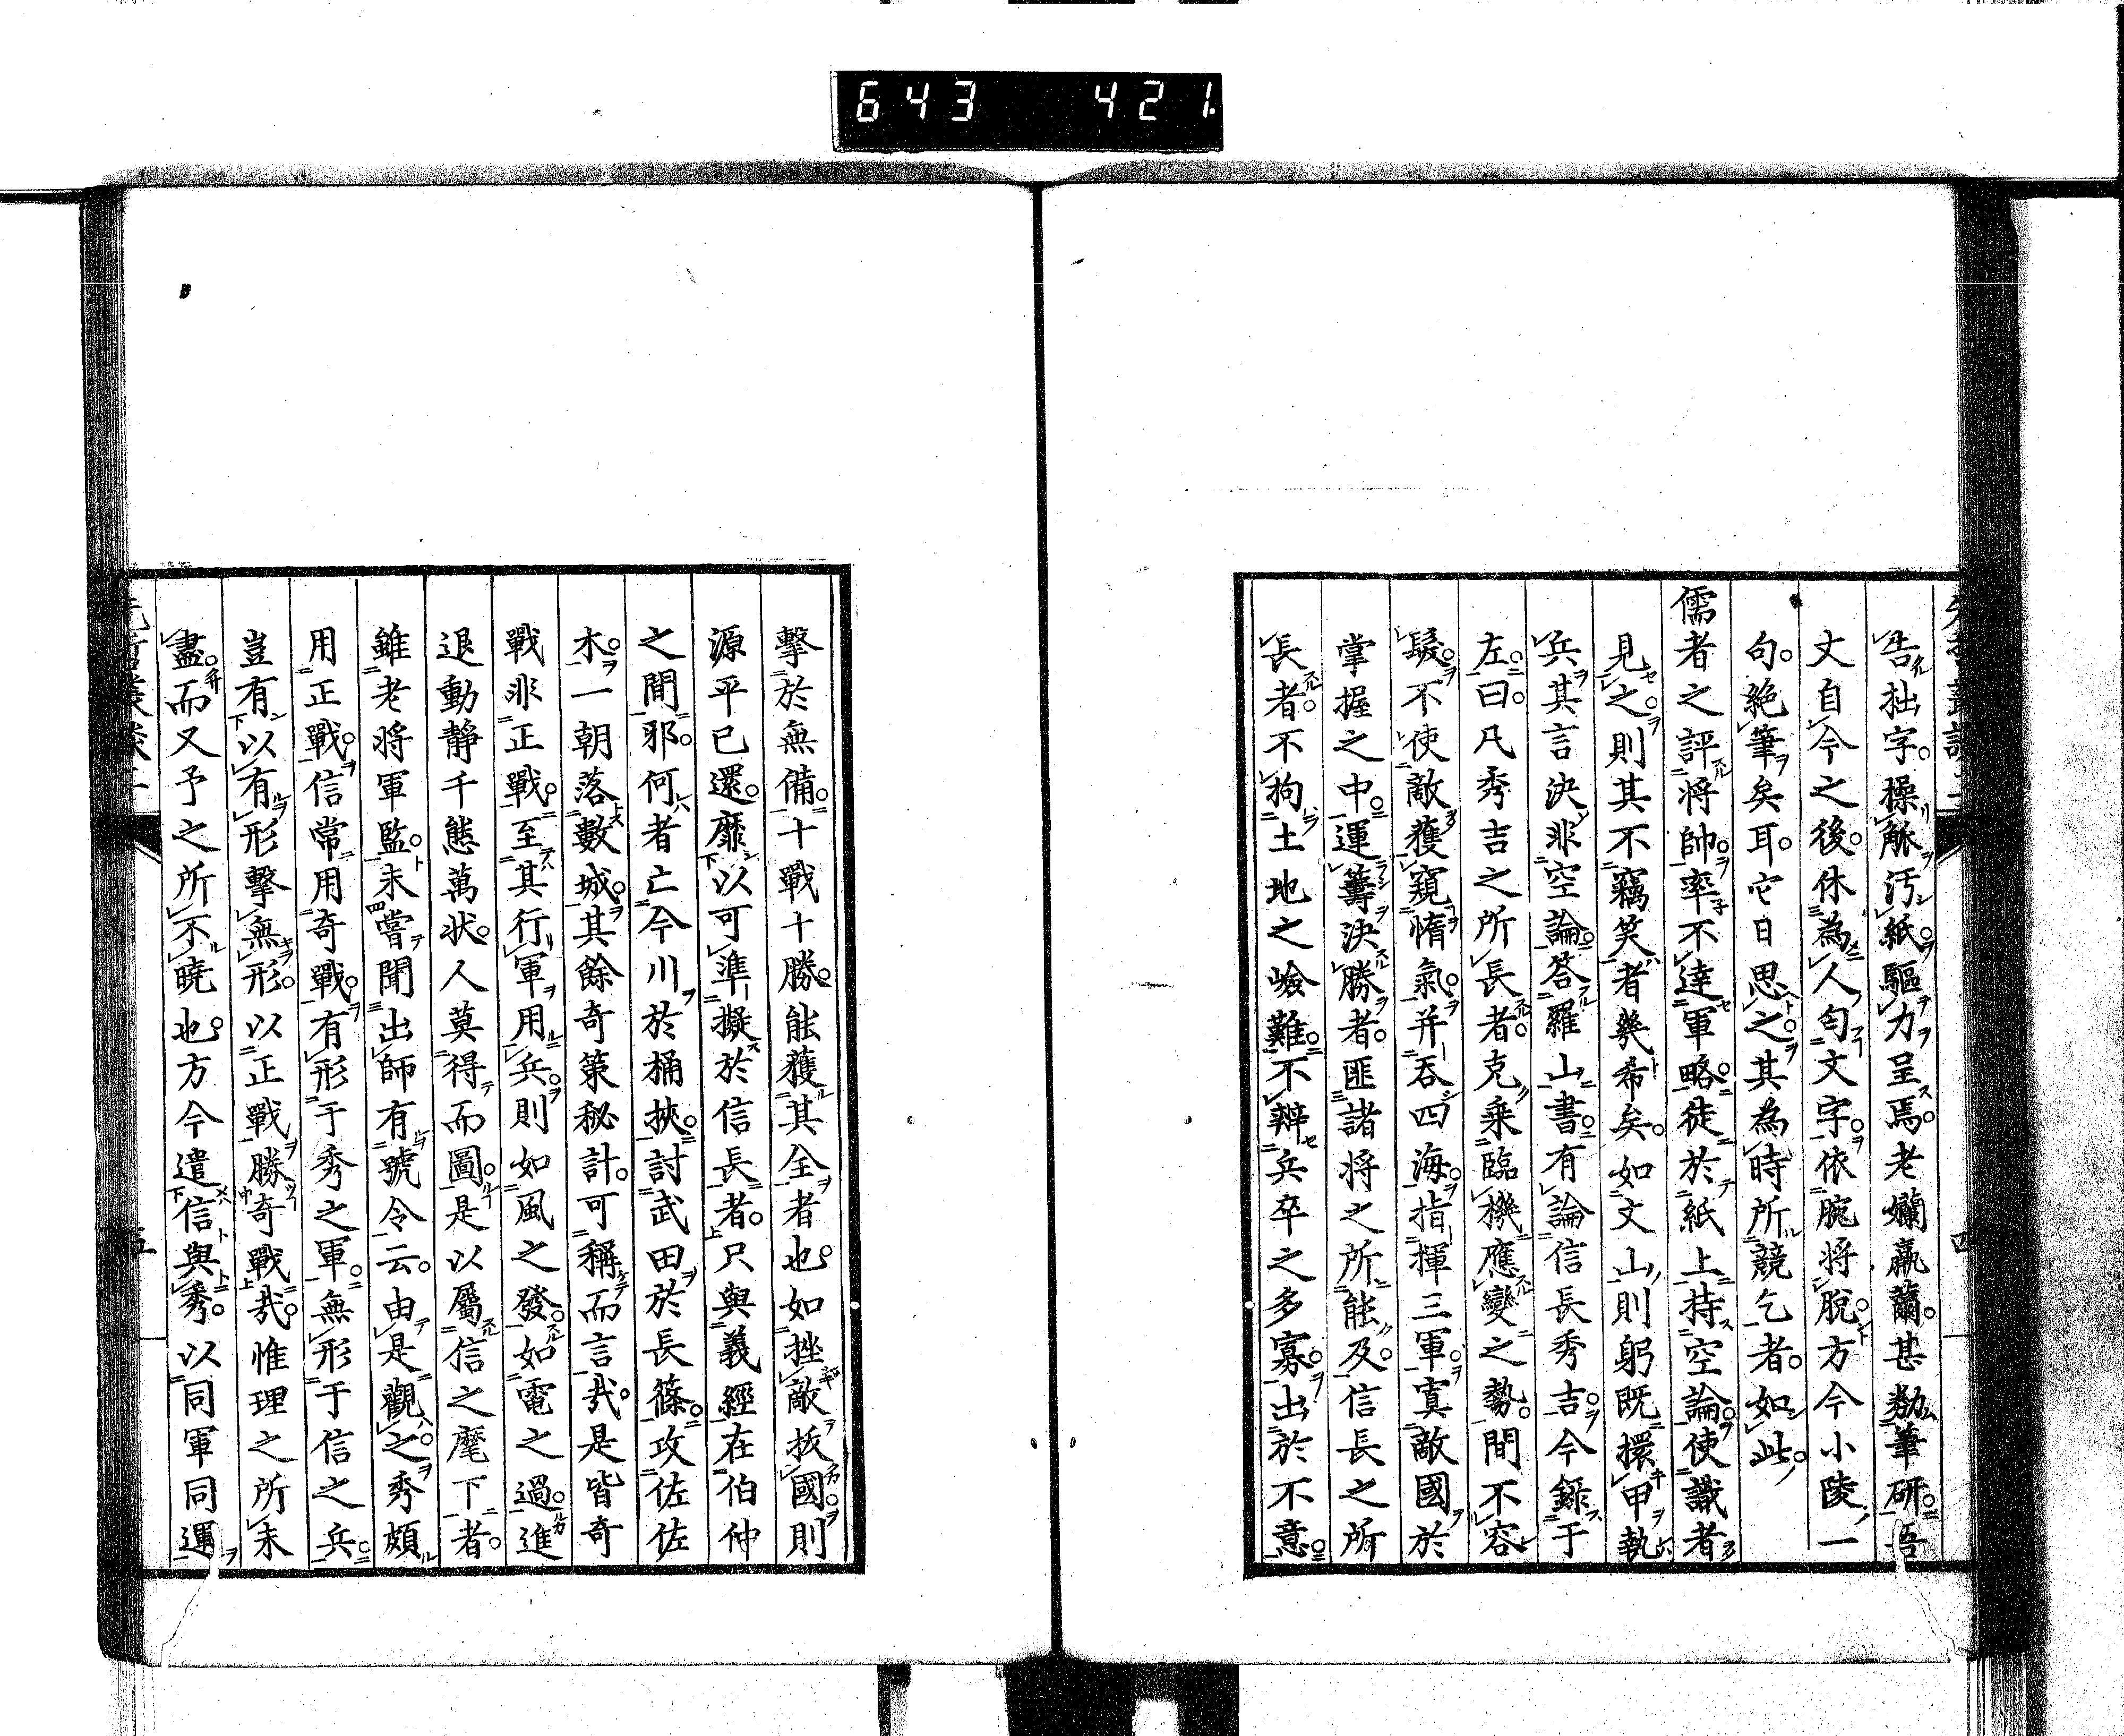 643 421
告拙字操觚汚紙驅力呈焉老孏羸薾甚勌筆研吾
丈自今之後休為人匄文字依腕将脫方今小陵一
句絶筆矣耳它日思之其為時所競乞者如此
儒者之評将帥率不達軍略徒於紙上持空論使識者
見之則其不竊笑者幾希矣如文山則躬既擐甲執
兵其言決非空論答羅山書有論信長秀吉今錄于
左曰凡秀吉之所長者克乘臨機應變之勢間不容
髮不使敵獲窺惰氣并吞四海指揮三軍寘敵國於
掌握之中運籌決勝者匪諸将之所能及信長之所
長者不拘土地之嶮難不辨兵卒之多寡出於不意
擊於無備十戰十勝能獲其全者也如挫敵拔國則
源平已還靡以可準擬於信長者只與義經在伯仲
之間邪何者亡今川於桶挾討武田於長篠攻佐佐
木一朝落數城其餘奇策秘計可稱而言哉是皆奇
戰非正戰至其行軍用兵則如風之發如電之過進
退動靜千態萬狀人莫得而圖是以屬信之麾下者
雖老将軍監未嘗聞出師有號令云由是觀之秀頗
用正戰信常用奇戰有形于秀之軍無形于信之兵
豈有以有形擊無形以正戰勝奇戰哉惟理之所未
盡而又予之所不曉也方今遣信與秀以同軍同運
四
五